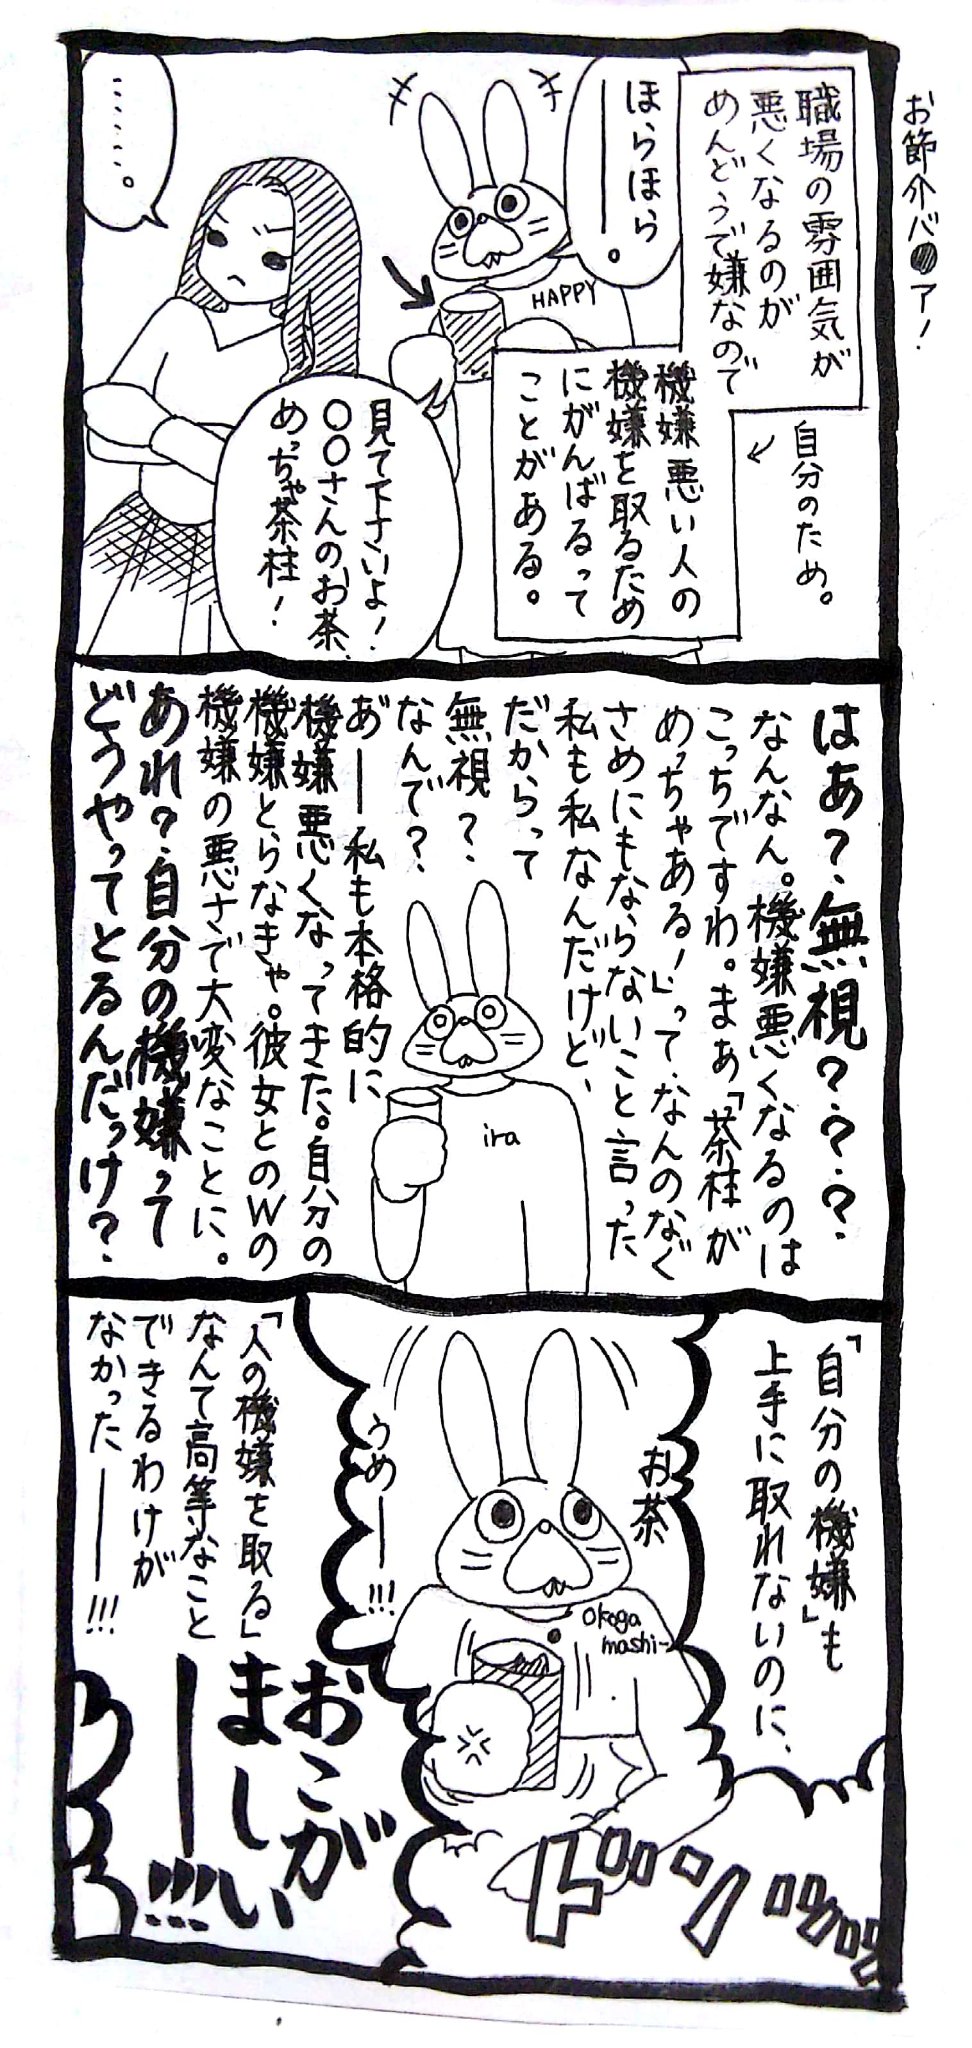 お節介バ●ア!
職場の雰囲気が
悪くなるのが
めんどうで嫌なので
自分のため。
機嫌悪い人の
機嫌を取るため
にがんばるって
ことがある。
ほらほら
ーー。
HAPPY
見て下さいよ!
〇〇さんのお茶、
めっちゃ茶柱!
……。
はぁ?無視????
なんなん。機嫌悪くなるのは
こっちですわ。まぁ「茶柱が
めっちゃある!」って、なんのなぐ
さめにもならないこと言った
私も私なんだけど、
だからって
無視?
なんで?
あ゛ー私も本格的に
機嫌悪くなってきた。自分の
機嫌とらなきゃ。彼女とのWの
機嫌の悪さで大変なことに。
あれ?自分の機嫌って
どうやってとるんだっけ?
ira
「自分の機嫌」も
上手に取れないのに、
お茶
うめーー!!!
Okoga
mashi-
「人の機嫌を取る」
なんて高等なこと
できるわけが
なかったーー!!!
おこが
ましい
ーー!!!!
ドンッ